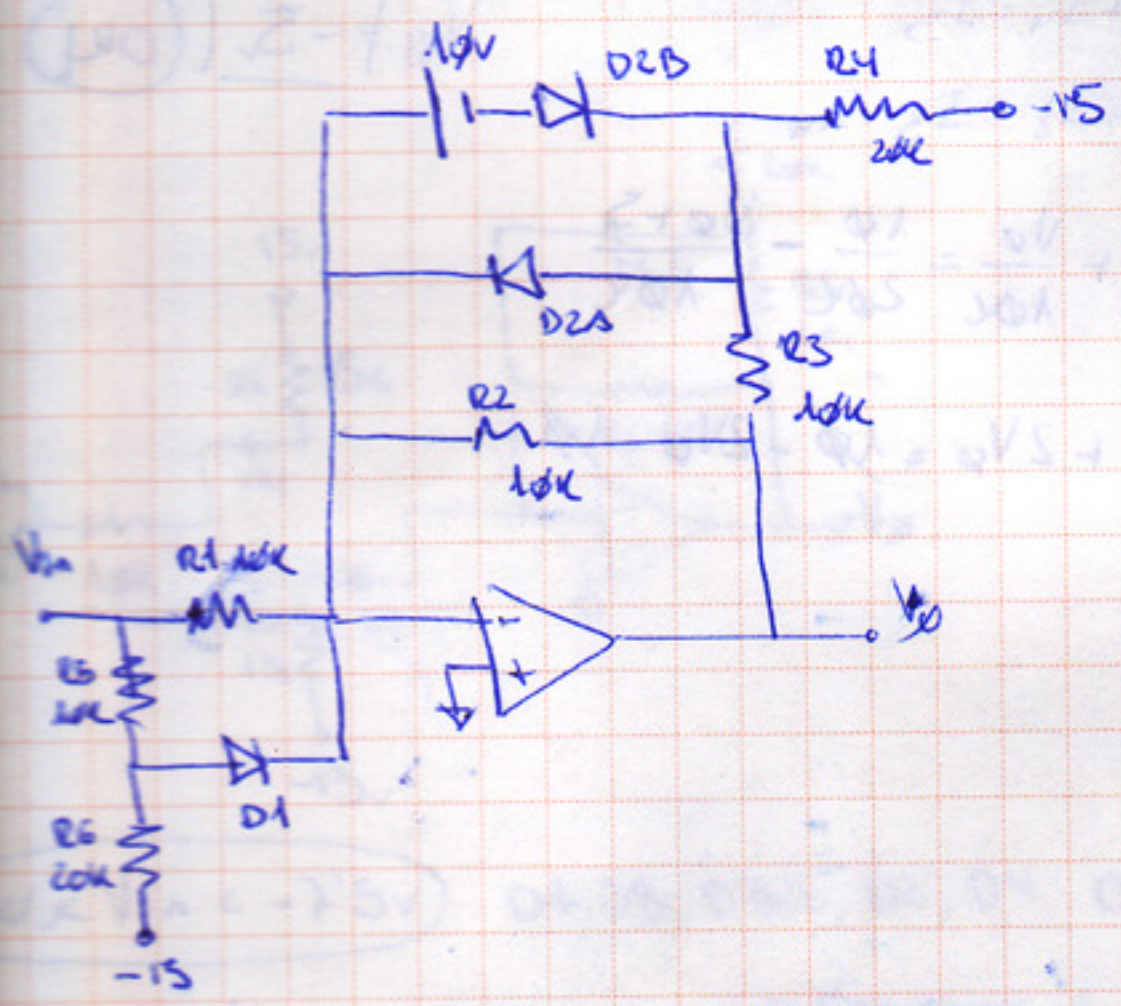 10V
D2B
R4
-15
20K
D2A
R3
10K
R2
10K
Vin
R1 10K
-
+
Vo
R5
10K
D1
R6
20K
-15